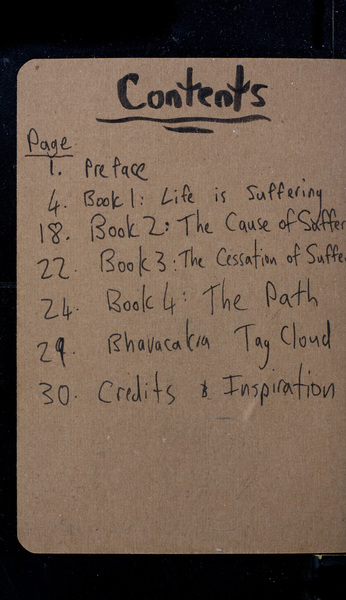 Contents
Page
1. Preface
4. Book 1: Life is Suffering
18. Book 2: The Cause of Suffer
22. Book 3: The Cessation of Suffe
24. Book 4: The Path
29. Bhavacakra Tag Cloud
30. Credits & Inspiration